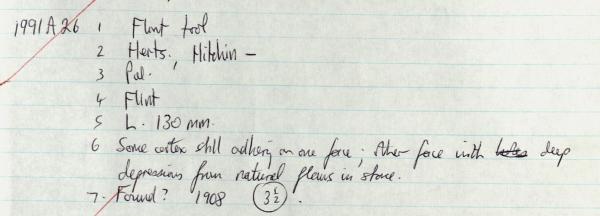 1991 A 26 1 Flint tool
2 Herts. Hitchin -
3 Pal.
4 Flint
5 L. 130 mm.
6 Some cortex still adhering on one face; other face with deep
depressions from natural flaws in stone.
7. Found? 1908 3 1/2 .